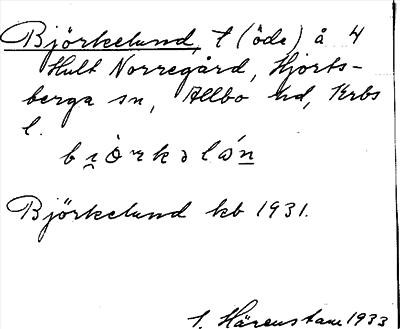 Björkelund, t (öde) å 4
Hult Norregård, Hjorts-
berga sn, Allbo hd, Krbs
l.
Björkelund kb 1931.
S. Härenstam 1933